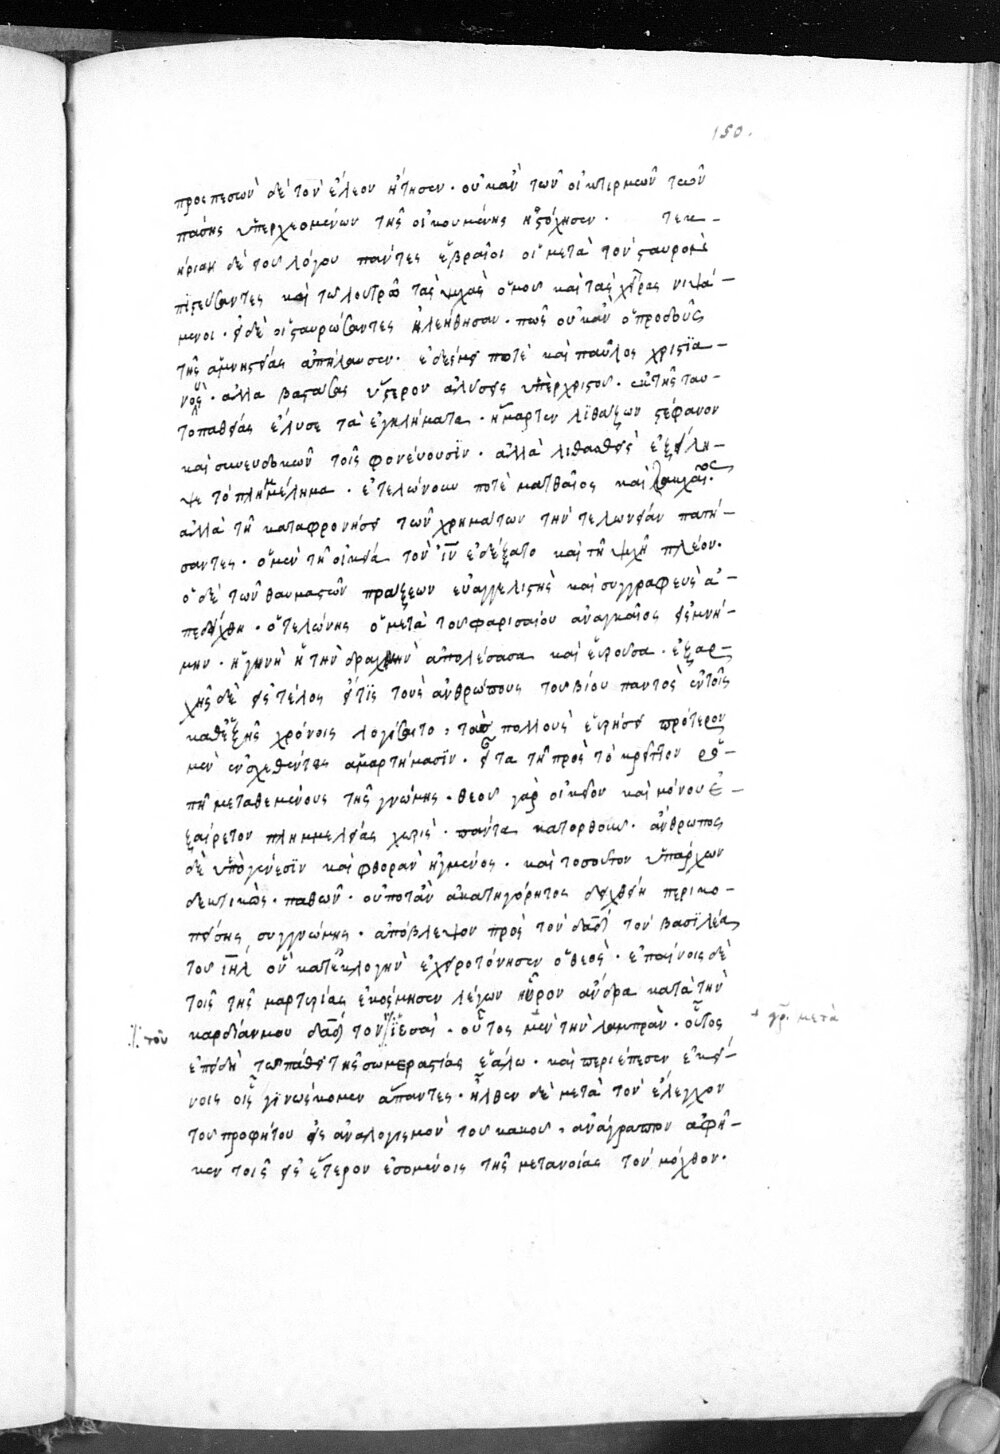 150.
προσπεσὼν δὲ τὸν ἔλεον ᾔτησεν · οὐκ ἂν τῶν οἰκτιρμῶν τῶν
πάσης ὑπερχεομένων τῆς οἰκουμένης ἠστόχησεν · τεκ-
μήριον δὲ τοῦ λόγου πάντες ἑβραῖοι οἱ μετὰ τὸν σταυρὸν
πιστεύσαντες καὶ τῷ λουτρῷ τὰς ψυχὰς ὁμοῦ καὶ τὰς χεῖρας νιψά-
μενοι · εἰ δὲ οἱ σταυρώσαντες ἠλεήθησαν · πῶς οὐκ ἂν ὁ προδοὺς
τῆς ἀμνηστείας ἀπήλαυσεν · ἐδέσμει ποτὲ καὶ παῦλος χριστϊα-
νούς · ἀλλὰ βαστάσας ὕστερον ἁλύσεις ὑπὲρ χριστοῦ · ἐκ τῆς ταυ-
τοπαθείας ἔλυσε τὰ ἐγκλήματα · ἥμαρτεν λιθάζων στέφανον
καὶ συνευδοκῶν τοῖς φονεύουσϊν · ἀλλὰ λιθασθεὶς ἐξήλει-
ψε τὸ πλημμέλημα · ἐτελώνουν ποτὲ ματθαῖος καὶ ζακχαῖος ·
ἀλλὰ τῇ καταφρονήσει τῶν χρημάτων τὴν τελωνείαν πατή-
σαντες · ὁ μὲν τῇ οἰκείᾳ τὸν ἰν ἐδέξατο καὶ τῇ ψυχῇ πλέον ·
ὁ δὲ τῶν θαυμαστῶν πράξεων εὐαγγελιστὴς καὶ συγγραφεὺς ἀ-
πεδείχθη · ὁ τελώνης ὁ μετὰ τοῦ φαρισαίου ἀναγκαῖος εἰς μνή-
μην · ἡ γυνὴ ἡ τὴν δραχμὴν ἀπολέσασα καὶ εὑροῦσα · ἐξ ἀρ-
χῆς δὲ εἰς τέλος εἴ τϊς τοὺς ἀνθρώπους τοῦ βίου παντὸς ἐν τοῖς
καθεξῆς χρόνοις λογίσαιτο, πολλοὺς εὑρήσει πρότερον
μὲν ἐνσχεθέντας ἁμαρτήμασϊν · εἶτα τῇ πρὸς τὸ κρεῖττον ῥο-
πῇ μεταθεμένους τῆς γνώμης · θεοῦ γὰρ οἰκεῖον καὶ μόνου ἐ-
ξαίρετον πλημμελείας χωρὶς · πάντα κατορθοῦν · ἄνθρωπος
δὲ ὑπὸ γένεσϊν καὶ φθορὰν ἠγμένος · καὶ τοσοῦτον ὑπάρχων
δεκτικὸς · παθῶν · οὐπόταν ἀκατηγόρητος δειχθείη περικο-
πείσης συγγνώμης · ἀπόβλεψον πρὸς τὸν δαδ τὸν βασϊλέα
τοῦ ιηλ ὃν κατ' ἐκλογὴν ἐχειροτόνησεν ὁ θεὸς · ἐπαίνοις δὲ
τοῖς τῆς μαρτυρίας ἐκόσμησεν λέγων εὗρον ἄνδρα κατὰ τὴν
καρδίαν μου δαδ τὸν ἰεσαί · οὗτος μὲν τὴν λαμπρὰν · οὗτος
⁒ τοῦ
+ γρ. μετὰ
ἐπειδὴ τῷ πάθει τῆς σωμεραστίας ἑάλω · καὶ περιέπεσεν ἐκεί-
νοις οἷς γινώσκομεν ἅπαντες · ἦλθεν δὲ μετὰ τὸν ἔλεγχον
τοῦ προφήτου εἰς ἀναλογισμὸν τοῦ κακοῦ, ἀνάγραπτον ἀφῆ-
κεν τοῖς εἰς ὕστερον ἐσομένοις τῆς μετανοίας τὸν μόχθον ·